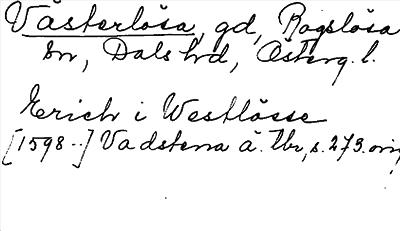 Västerlösa, gd, Rogslösa
sn, Dals hd, Österg. l.
Erich i Westlösse
[1598--] Vadstena ä. tbr, s. 273. orig.